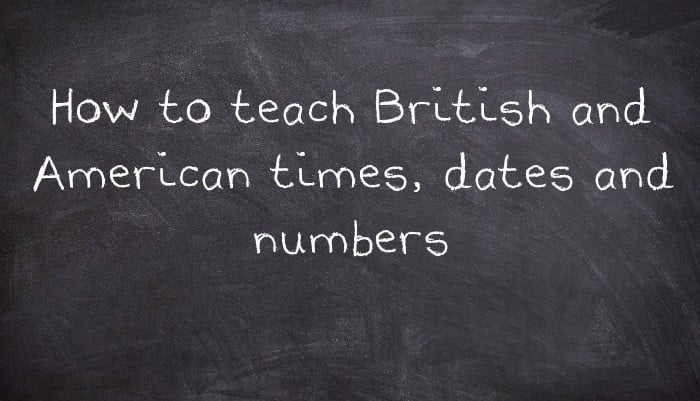 How to teach British and
American times, dates and
numbers